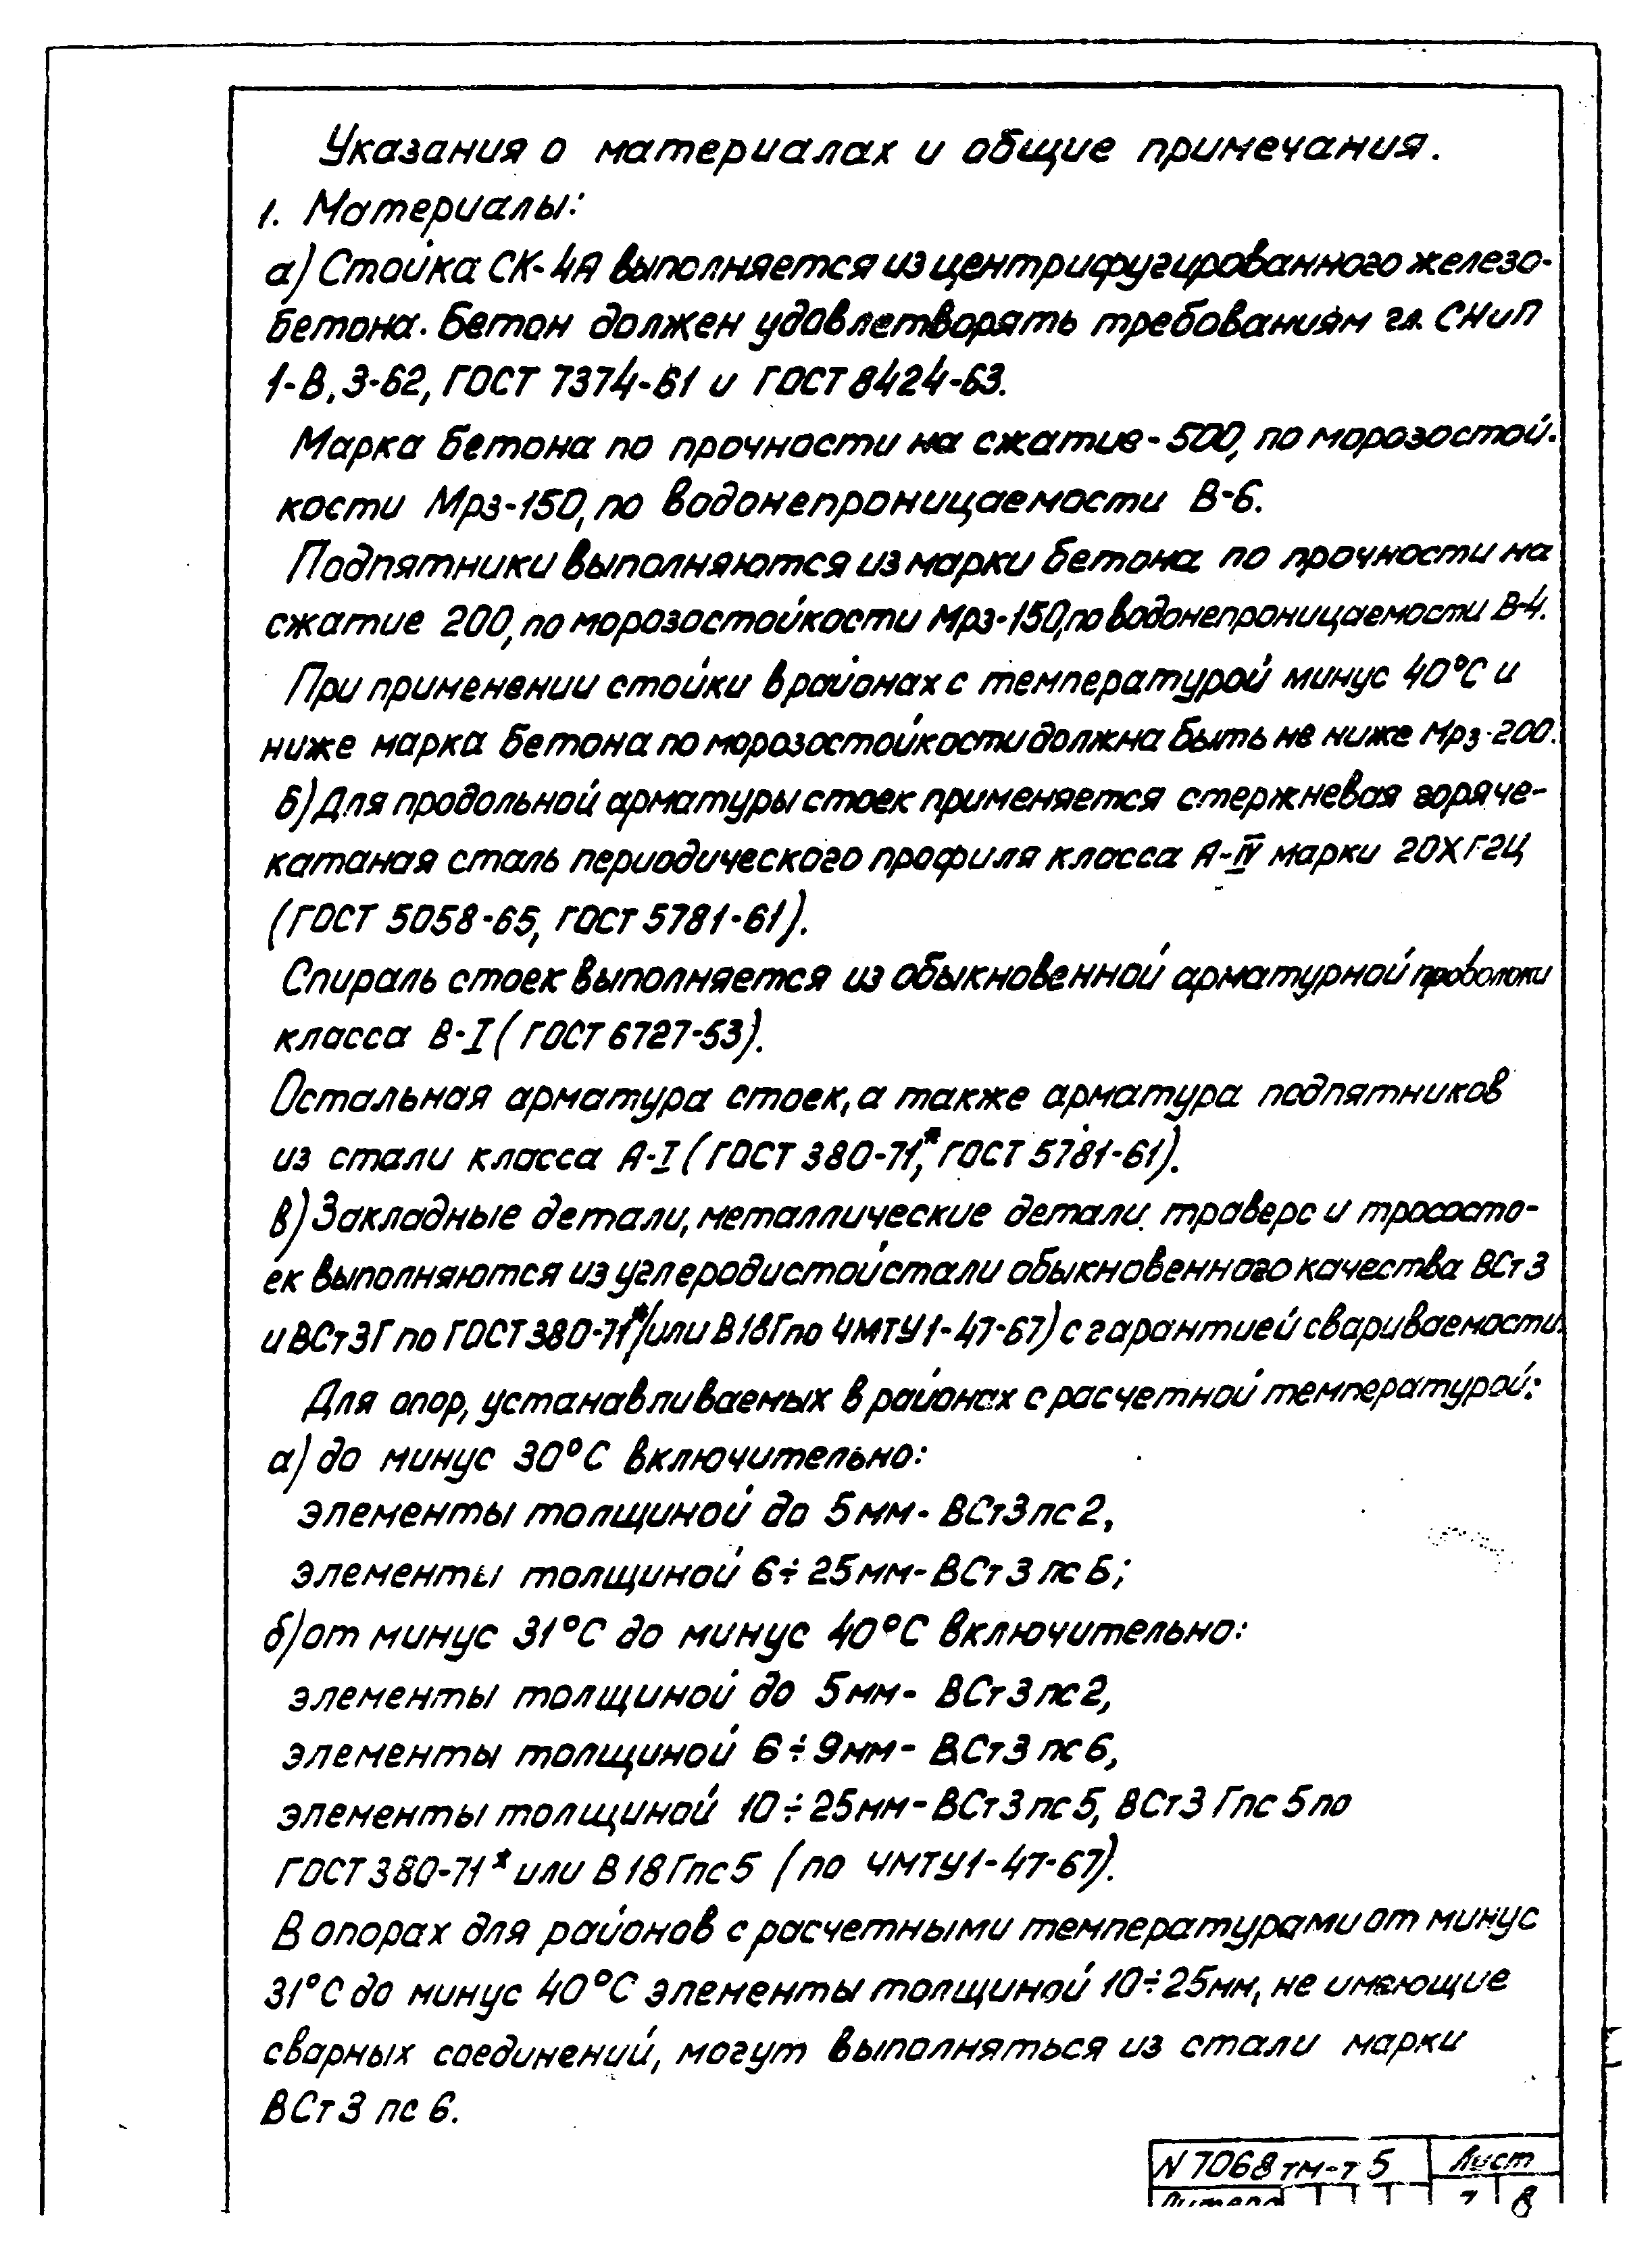 Указания о материалах и общие примечания.
1. Материалы:
а) Стойка СК-4А выполняется из центрифугированного железо-
бетона. Бетон должен удовлетворять требованиям гл. СНиП
1-В,3-62, ГОСТ 7374-61 и ГОСТ 8424-63.
Марка бетона по прочности на сжатие-500, по морозостой-
кости Мрз-150, по водонепроницаемости В-6.
Подпятники выполняются из марки бетона по прочности на
сжатие 200, по морозостойкости Мрз-150, по водонепроницаемости В-4.
При применении стойки в районах с температурой минус 40°С и
ниже марка бетона по морозостойкости должна быть не ниже Мрз-200.
б) Для продольной арматуры стоек применяется стержневая горяче-
катаная сталь периодического профиля класса А-IV марки 20ХГ2Ц
(ГОСТ 5058-65, ГОСТ 5781-61).
Спираль стоек выполняется из обыкновенной арматурной проволоки
класса В-I (ГОСТ 6727-53).
Остальная арматура стоек, а также арматура подпятников
из стали класса А-I (ГОСТ 380-71*, ГОСТ 5781-61).
в) Закладные детали, металлические детали траверс и трососто-
ек выполняются из углеродистой стали обыкновенного качества ВСт3
и ВСт3Г по ГОСТ 380-71* (или В18Г по ЧМТУ1-47-67) с гарантией свариваемости.
Для опор, устанавливаемых в районах с расчетной температурой:
а) до минус 30°С включительно:
элементы толщиной до 5мм- ВСт3пс2,
элементы толщиной 6÷25мм-ВСт3пс6;
б) от минус 31°С до минус 40°С включительно:
элементы толщиной до 5мм- ВСт3пс2,
элементы толщиной 6÷9мм- ВСт3пс6,
элементы толщиной 10÷25мм-ВСт3пс5, ВСт3Гпс5 по
ГОСТ 380-71* или В18Гпс5 (по ЧМТУ1-47-67).
В опорах для районов с расчетными температурами от минус
31°С до минус 40°С элементы толщиной 10÷25мм, не имеющие
сварных соединений, могут выполняться из стали марки
ВСт3пс6.
N 7068тм-т5 Лист
Литера 8